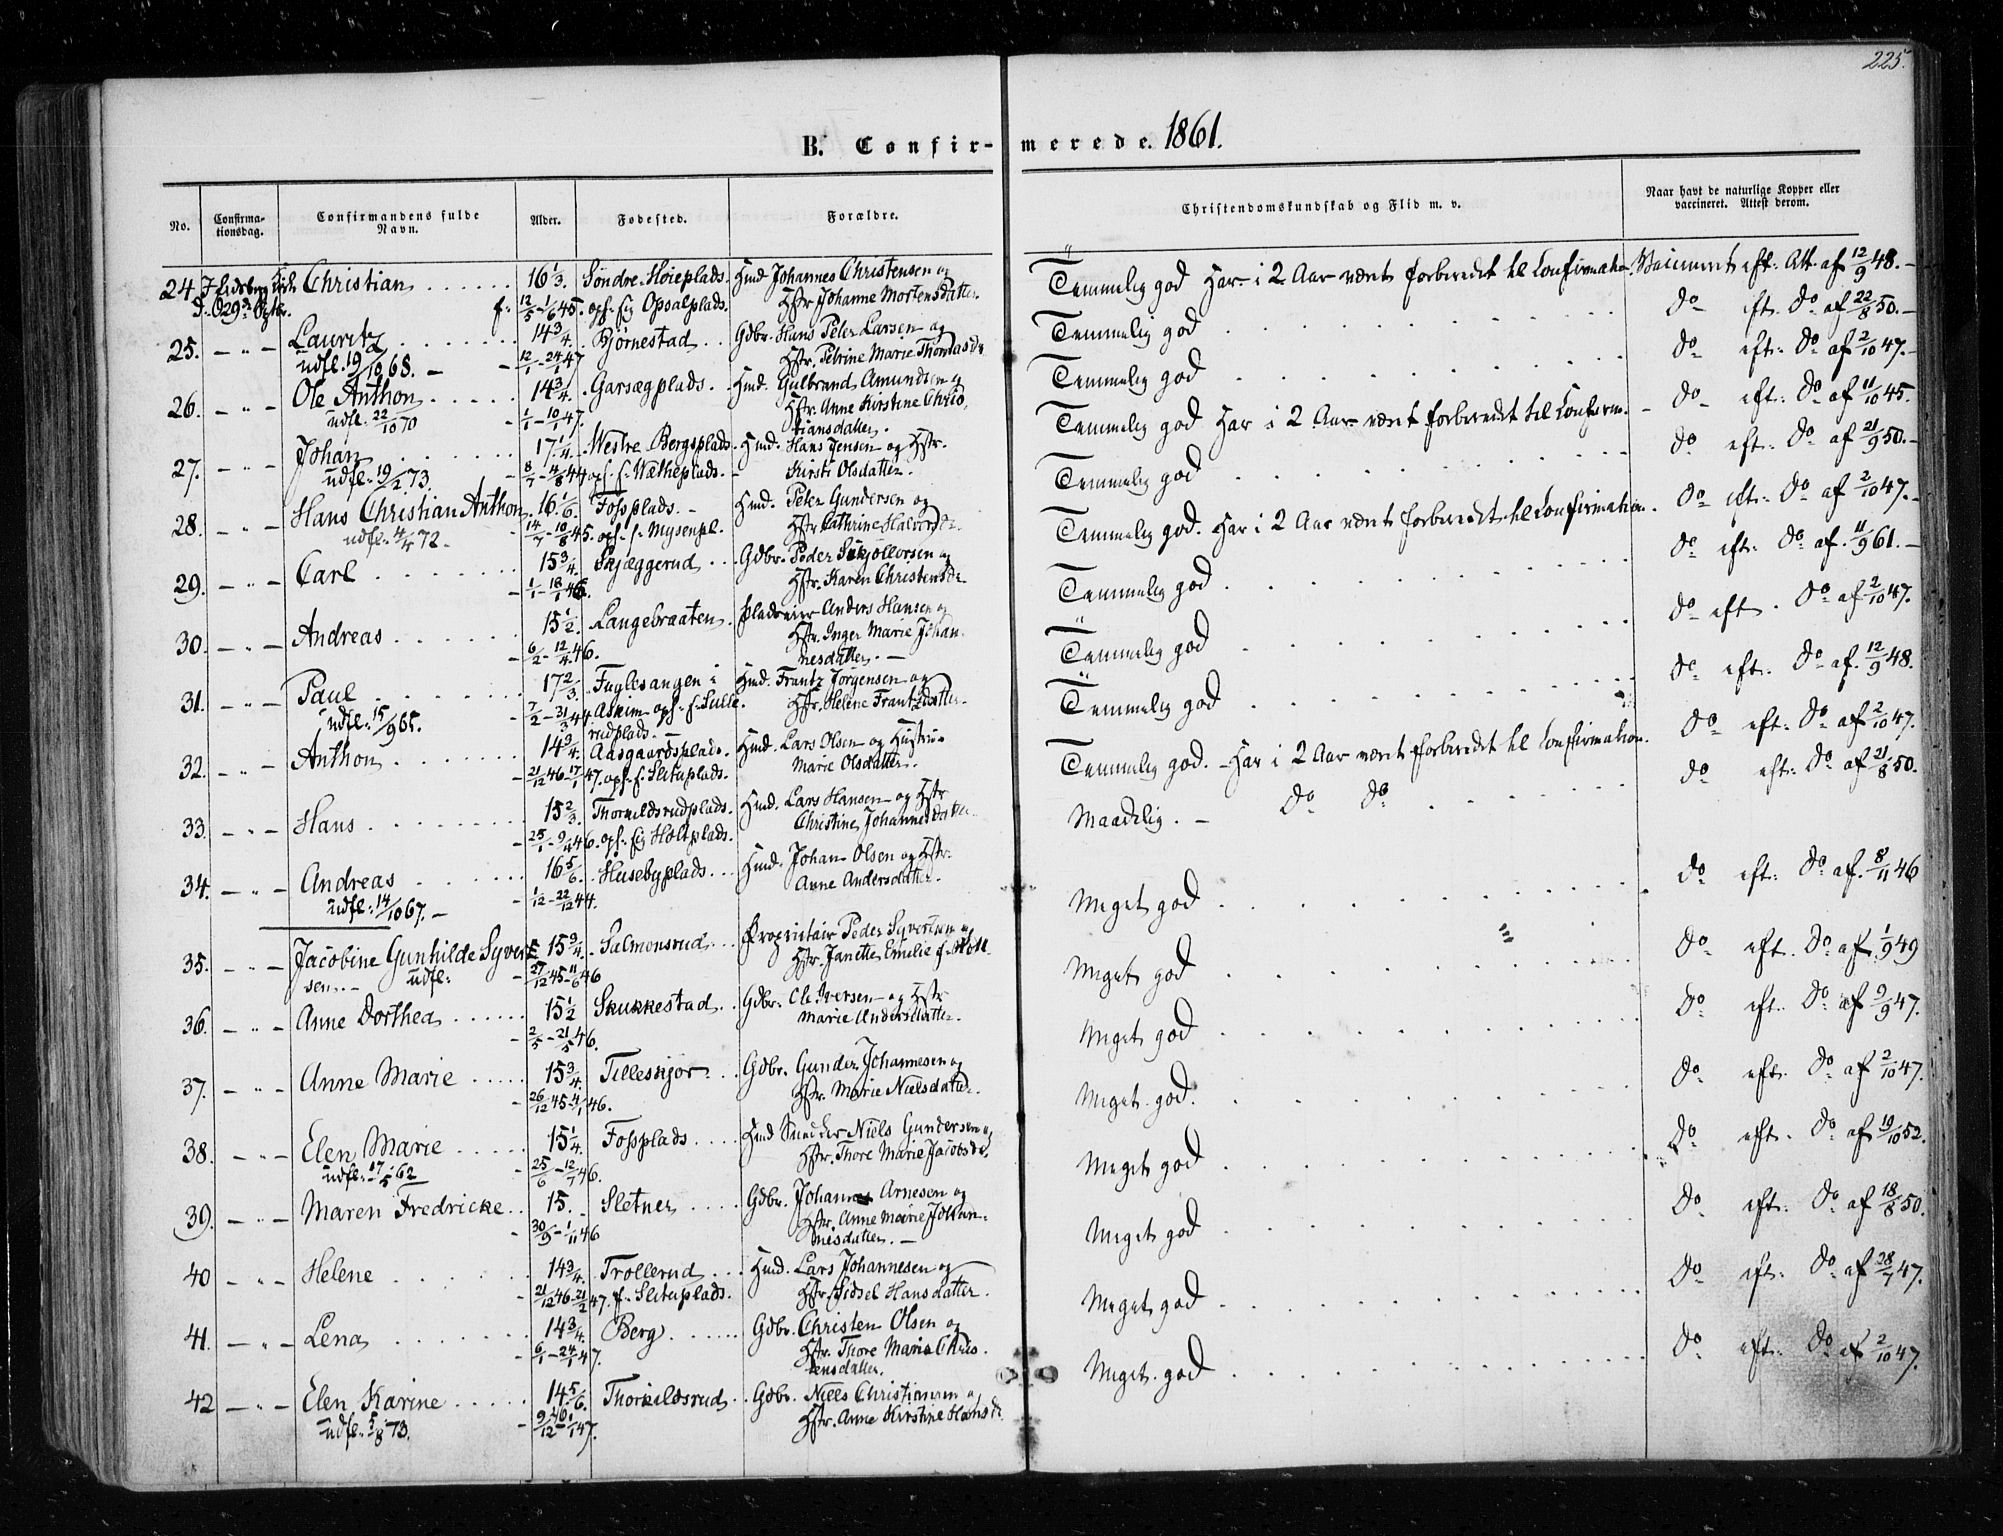 225.
B. Confirmerede. 1861.
No.
Confirma-
tionsdag.
Confirmandens fulde
Navn.
Alder.
Fødested.
Forældre.
Christendomskundskab og Flid m. v.
Naar havt de naturlige Kopper eller
vaccineret. Attest derom.
24. Christian 16 1/3. Søndre Høieplads. Hmd. Johannes Christensen og
d. 29de Septbr. f. 12/5 - 1/6 45. opf. Opsalplads. Hstr. Johanne Mortensdatter.
Temmelig god Har i 2 Aar været forberedt til Confirmation. Vaccineret eft. Att. af 12/9 48.
25. - " - Lauritz 14 3/4. Bjørnestad Gdbr. Hans Peter Larsen og
udfl. 19/10 68. 12/1 - 24/1 47 Hstr. Petrine Marie Thomasdr
Temmelig god do eft. do af 22/8 50.
26. - " - Ole Anthon 14 3/4. Garsægplads. Hmd. Gulbrand Amundsen og
udfl. 22/10 70 1/1 - 10/1 47. Hstr. Anne Kirstine Chris-
tiansdatter.
Temmelig god do eft. do af 2/10 47.
27. - " - Johan 17 1/4. Westre Bergsplads. Hmd. Hans Jensen og Hstr.
udfl. 19/2 73. 8/7 - 4/8 44 opf. f. Wætheplads. Kirsti Olsdatter.
Temmelig god Har i 2 Aar været forberedt til Confirm. do eft. do af 11/10 45.
28. - " - Hans Christian Anthon 16 1/6. Fossplads. Hmd. Peter Gundersen og
udfl. 4/4 72. 14/7 - 10/8 45. opf. f. Mysenpl. Hstr. Cathrine Halvorsdr.
Temmelig god do eft. do af 21/9 50.
29. - " - Carl 15 3/4. Skjæggerud Gdbr. Peder Skjøllersen og
1/1 - 18/1 46. Hstr. Karen Christensdr.
Temmelig god. Har i 2 Aar været forberedt til Confirmation. do eft. do af 2/10 47.
30. - " - Andreas 15 1/2. Langebraaten. Pladseier Anders Hansen og
6/2 - 12/4 46. Hstr. Inger Marie Johan-
nesdatter.
Temmelig god do eft. do af 11/9 61.
31. - " - Paul 17 2/3. Fuglesangen i Hmd. Frantz Jørgensen og
udfl. 15/9 65. 7/2 - 31/3 44. Askim opf. f. Sulle- Hstr. Helene Frantzdatter.
rudplads.
Temmelig god do eft. do af 2/10 47.
32. - " - Anthon 14 3/4. Aasgaardsplads. Hmd. Lars Olsen og Hustru
21/12 46 - 17/1 47. opf. f. Slituplads. Marie Olsdatter.
Temmelig god do eft. do af 12/9 48.
33. - " - Hans 15 2/3. Thorkildsrudplads. Hmd. Lars Hansen og Hstr
25/1 - 9/4 46. opf. Holtplads. Christine Johannesdatter.
Temmelig god. Har i 2 Aar været forberedt til Confirmation. do eft. do af 2/10 47.
34. - " - Andreas 16 5/6. Husebyplads. Hmd. Johan Olsen og Hstr.
udfl. 14/10 67. 1/12 - 22/12 44. Anne Andersdatter.
Maadelig. do do do eft. do af 21/8 50.
35. - " - Jacobine Gunhilde Syvert- 15 3/4. Salmonsrud Proprietair Peder Syvertsen og
sen. udfl. 27/12 45 - 11/6 46 Hstr. Janette Emelie f. Holt.
Meget god do eft. do af 8/11 46
36. - " - Anne Dorthea 15 1/2 Skukkestad Gdbr. Ole Iversen og Hstr
2/5 - 21/5 46. Marie Andersdatter.
Meget god do eft. do af 1/9 49
37. - " - Anne Marie 15 3/4. Tilleskjør Gdbr. Gunder Johannesen og
26/12 45 - 4/1 46. Hstr. Marie Nielsdatter.
Meget god do eft. do af 9/9 47.
38. - " - Elen Marie 15 1/4. Fossplads Hmd Snedker Niels Gundersen og
udfl. 17/5 62 25/6 - 12/7 46. Hstr. Thore Marie Jacobsdr.
Meget god. do eft. do af 2/10 47.
39. - " - Maren Fredrikke 15. Sletner Gdbr. Johannes Arnesen og
30/9 - 1/11 46 Hstr. Anne Marie Johan-
nesdatter.
Meget god do eft. do af 19/10 52.
40 - " - Helene 14 3/4. Trollerud Hmd. Lars Johannesen og
21/12 46 - 21/2 47. f. Slituplads. Hstr. Sidsel Hansdatter.
Meget god do eft. do af 18/8 50.
41. - " - Lena 14 3/4. Berg Gdbr. Christen Olsen og
6/1 - 24/1 47. Hstr. Thore Marie Chris-
tensdatter.
Meget god do eft. do af 28/7 47.
42 - " - Elen Karine 14 5/6. Thorkildsrud Gdbr. Niels Christiansen og
udfl. 5/8 73. 9/12 46 - 1/1 47. Hstr. Anne Kirstine Hansdr
Meget god do eft. do af 2/10 47.